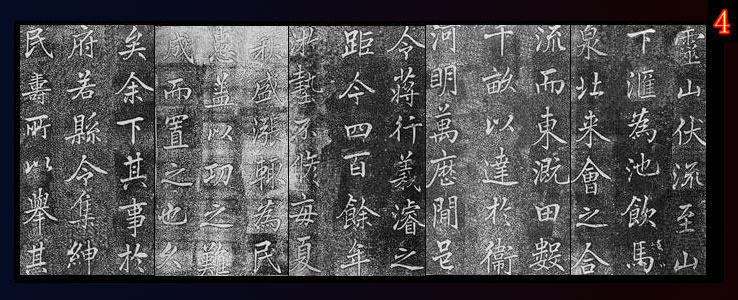 4
靈山伏流至山
下滙為池飲馬
泉北来會之合
流而東溉田數
千畝以達於衞
河明萬厯間邑
令蔣行義濬之
距今四百餘年
淤墊不修每夏
秋盛漲輒為民
患盖以功之難
成而置之也久
矣余下其事於
府若縣令集紳
民籌所以舉其